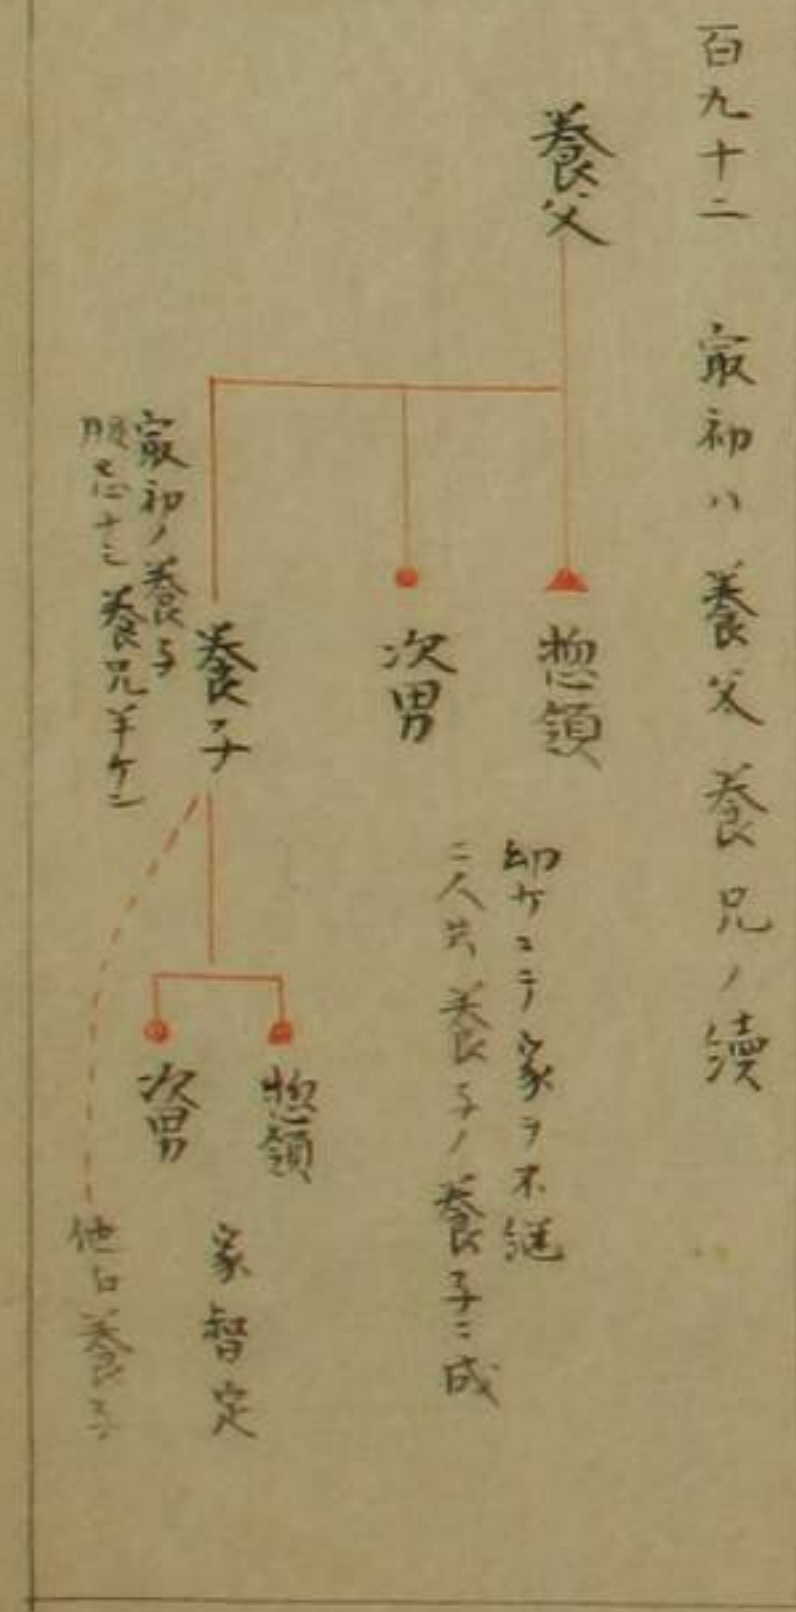 百九十二 㝡初ハ養父養兄ノ續
養父
惣領
幼ケニテ家ヲ不継
二人共養子ノ養子ニ成
次男
養子
㝡初ノ養子
服忌ナシ養兄半ケン
惣領
次男
家督定
他ゟ養子